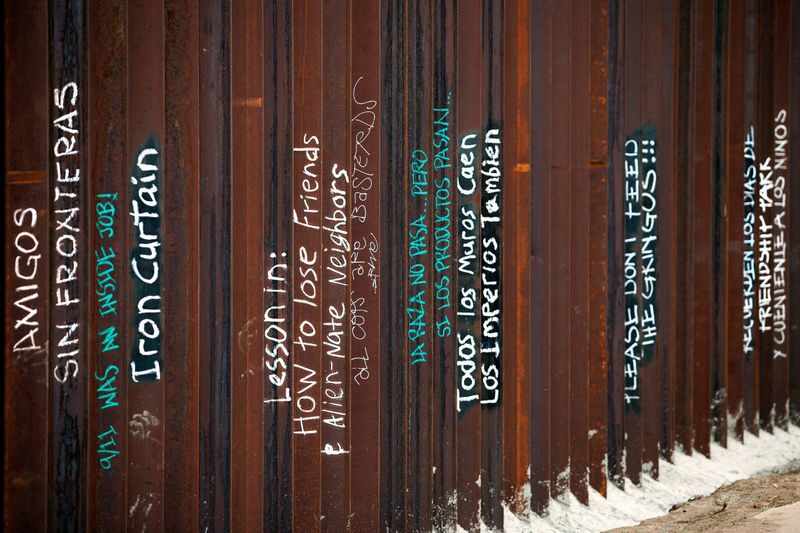 AMIGOS
SIN FRONTERAS
9/11 WAS AN INSIDE JOB!
Iron Curtain
Lesson in:
HOW to lose Friends
& Alien-Nate Neighbors
all cops are BasTERDS
LA RAZA NO PASA...PERO
SI LOS PRODUCTOS PASAN...
Todos los Muros Caen
Los Imperios Tambien
PLEASE DON'T FEED
THE GRINGOS!!!
RECUERDEN LOS DIAS DE
FRIENDSHIP PARK
Y CUENTENLE A LOS NIÑOS